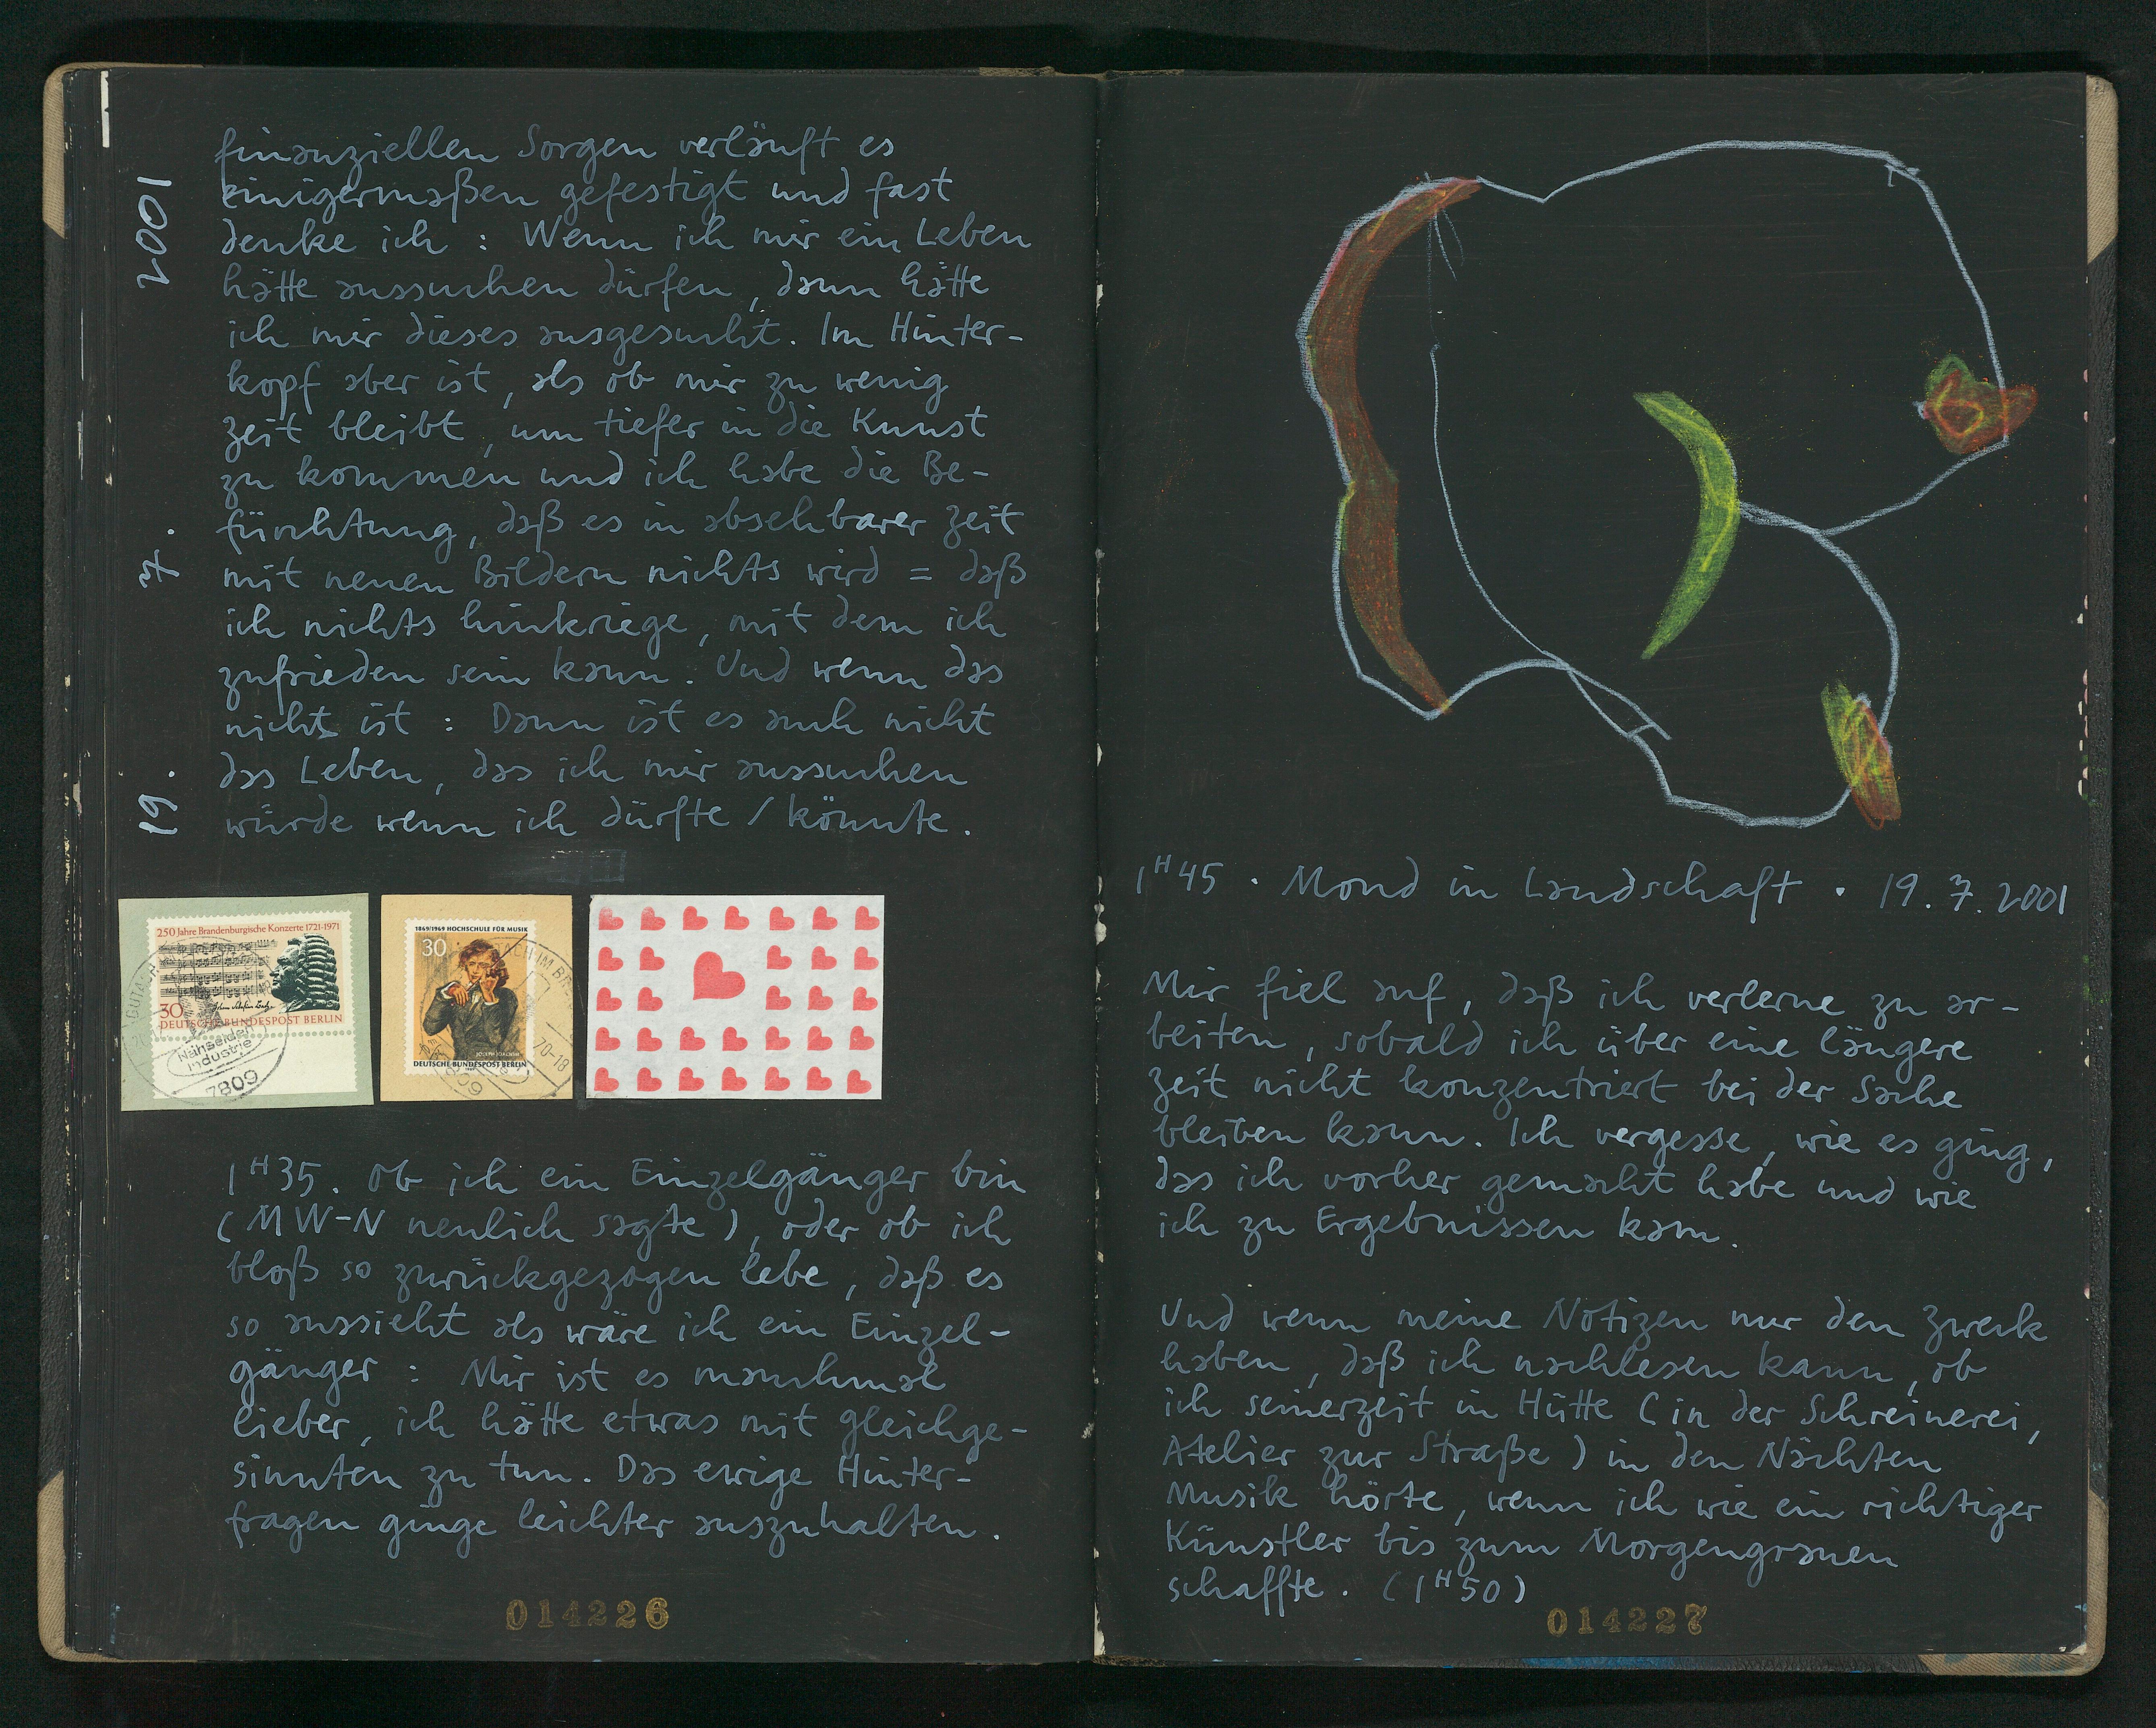 19. 7. 2001
finanziellen Sorgen verläuft es
einigermaßen gefestigt und fast
denke ich : Wenn ich mir ein Leben
hätte aussuchen dürfen, dann hätte
ich mir dieses ausgesucht. Im Hinter-
kopf aber ist, als ob mir zu wenig
Zeit bleibt, um tiefer in die Kunst
zu kommen und ich habe die Be-
fürchtung, daß es in absehbarer Zeit
mit neuen Bildern nichts wird = daß
ich nichts hinkriege, mit dem ich
zufrieden sein kann. Und wenn das
nicht ist : Dann ist es auch nicht
das Leben, das ich mir aussuchen
würde wenn ich dürfte / könnte.
250 Jahre Brandenburgische Konzerte 1721-1971
30
DEUTSCHE BUNDESPOST BERLIN
Nähseiden
Industrie
7809
1869/1969 HOCHSCHULE FÜR MUSIK
30
JOSEPH JOACHIM
DEUTSCHE BUNDESPOST BERLIN
70-18
1H35. Ob ich ein Einzelgänger bin
(MW-N neulich sagte), oder ob ich
bloß so zurückgezogen lebe, daß es
so aussieht als wäre ich ein Einzel-
gänger : Mir ist es manchmal
lieber, ich hätte etwas mit gleichge-
sinnten zu tun. Das ewige Hinter-
fragen ginge leichter auszuhalten.
014226
1H45 . Mond in Landschaft . 19. 7. 2001
Mir fiel auf, daß ich verlerne zu ar-
beiten, sobald ich über eine längere
Zeit nicht konzentriert bei der Sache
bleiben kann. Ich vergesse, wie es ging,
das ich vorher gemacht habe und wie
ich zu Ergebnissen kam.
Und wenn meine Notizen nur den Zweck
haben, daß ich nachlesen kann, ob
ich seinerzeit in Hütte (in der Schreinerei,
Atelier zur Straße) in den Nächten
Musik hörte, wenn ich wie ein richtiger
Künstler bis zum Morgengrauen
schaffte. (1H50)
014227